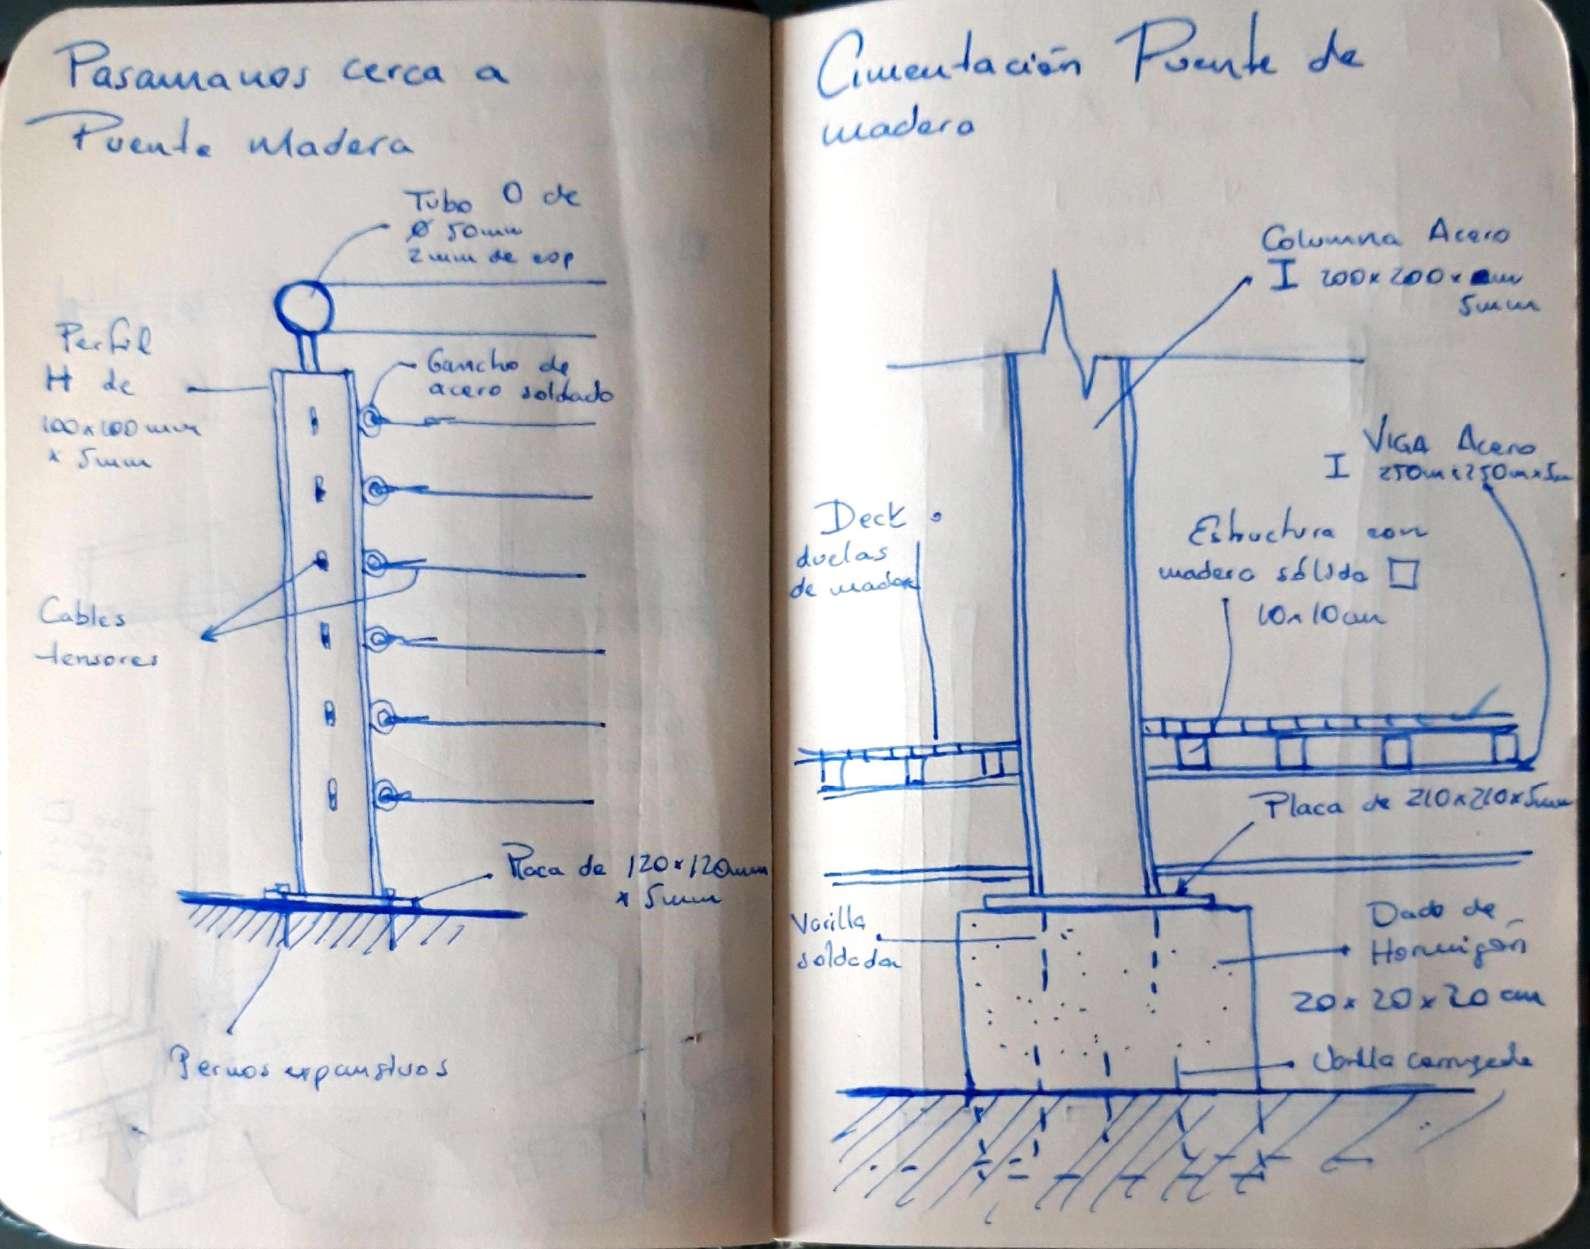 Pasamanos cerca a
Puente Madera
Tubo O de
Ø 50mm
2mm de esp
Perfil
H de
100x100mm
x 5mm
Gancho de
acero soldado
Cables
tensores
Placa de 120x120mm
x 5mm
Pernos expansivos
Cimentación Puente de
madera
Columna Acero
I 200x200x
5mm
VIGA Acero
I 250m x 250m x 5m
Deck
duelas
de madera
Estructura con
madera sólida □
10x10cm
Placa de 210x210x5mm
Varilla
soldada
Dado de
Hormigón
20x20x20cm
Varilla corrugada